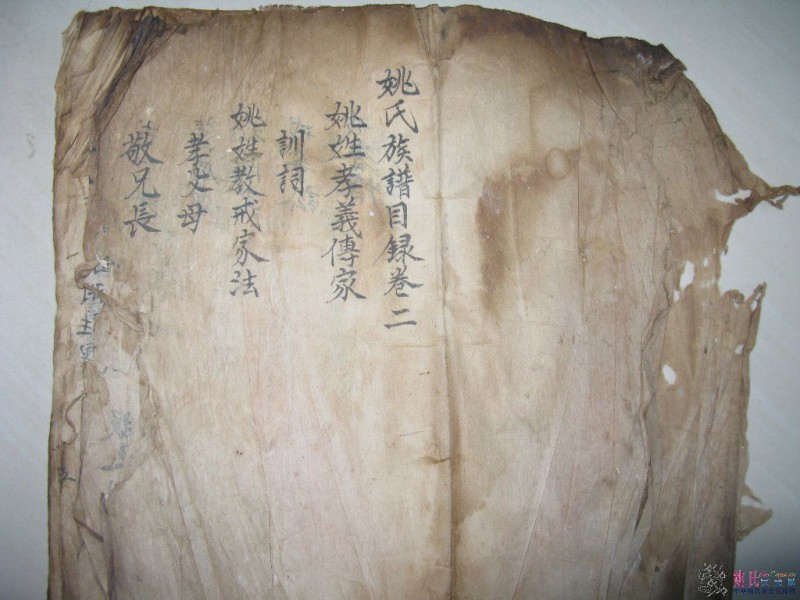 姚氏族譜目録卷二
姚姓孝義傳家
訓詞
姚姓教戒家法
孝父母
敬兄長